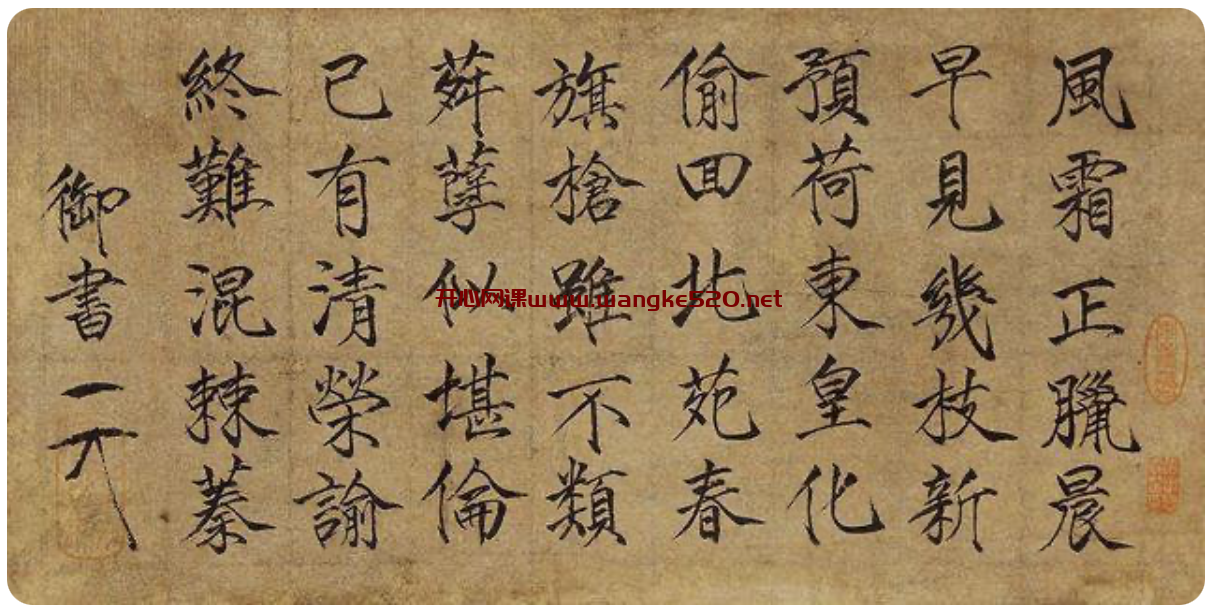 風霜正臘晨
早見幾枝新
預荷東皇化
偷回北苑春
旗槍雖不類
荈孽似堪倫
已有清榮諭
終難混棘蓁
御書
开心网课www.wangke520.net